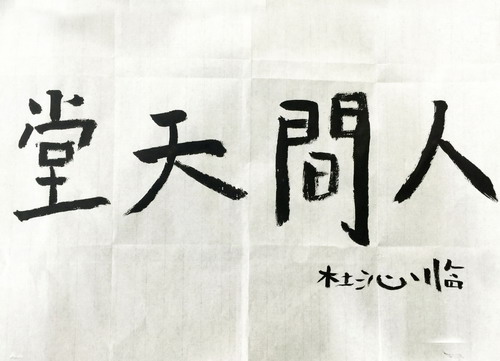 人間天堂
杜沁临